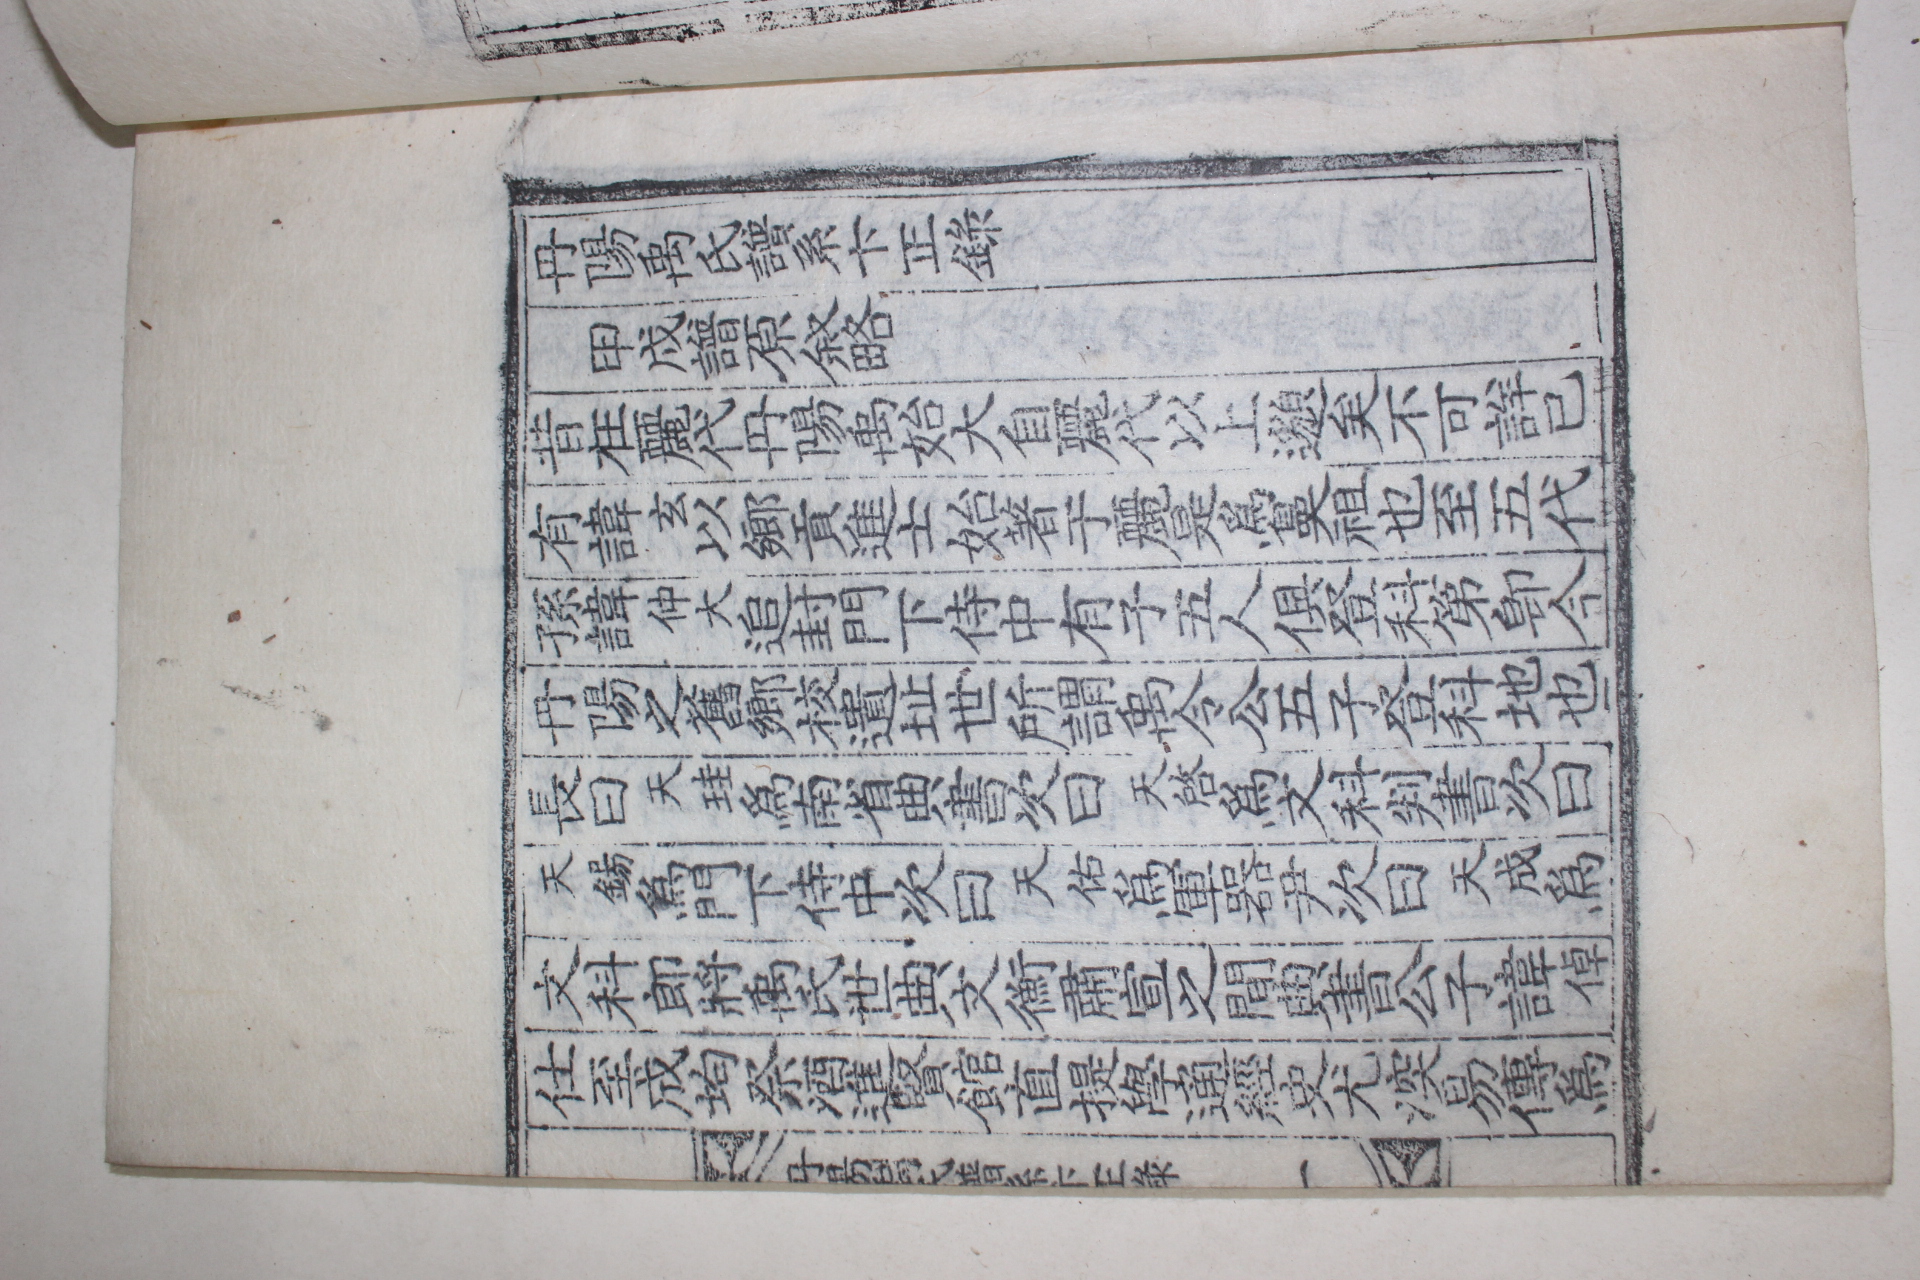 丹陽禹氏譜系卞正錄
甲戌譜原叙略
昔在麗代丹陽禹始大自麗代以上邈矣不可詳已
有諱玄以鄕貢進士始著于麗是爲鼻祖也至五代
孫諱仲大追封門下侍中有子五人俱登科第卽今
丹陽之舊鄕校遺址世所謂禹令公五子登科地也
長曰天珪爲南省典書次曰天啓爲文科判書次曰
天錫爲門下侍中次曰天佑爲軍器尹次曰天成爲
文科郎將禹氏世典文衡肅宣之間典書公子諱倬
仕至成均祭酒進賢館直提學通經史尤深易傳爲
丹陽禹氏譜系卞正錄 一